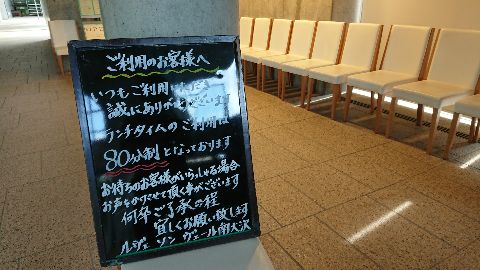 ご利用のお客様へ
いつもご利用いただき
誠にありがとうございます
ランチタイムのご利用は
80分制となっております
お待ちのお客様がいらっしゃる場合
お声をかけさせて頂く事がございます
何卒ご了承の程
宜しくお願い致します
ルジェ ソン ヴェール南大沢